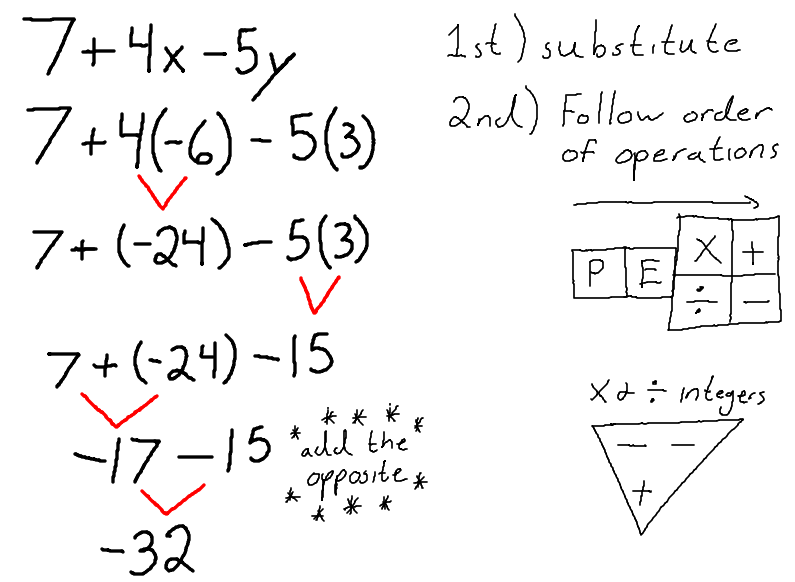 7 + 4x - 5y
7 + 4(-6) - 5(3)
7 + (-24) - 5(3)
7 + (-24) - 15
-17 - 15
-32
* * * * *
add the
opposite
* * * * *
1st) substitute
2nd) Follow order
of operations
P E x +
÷ -
x & ÷ integers
- -
+